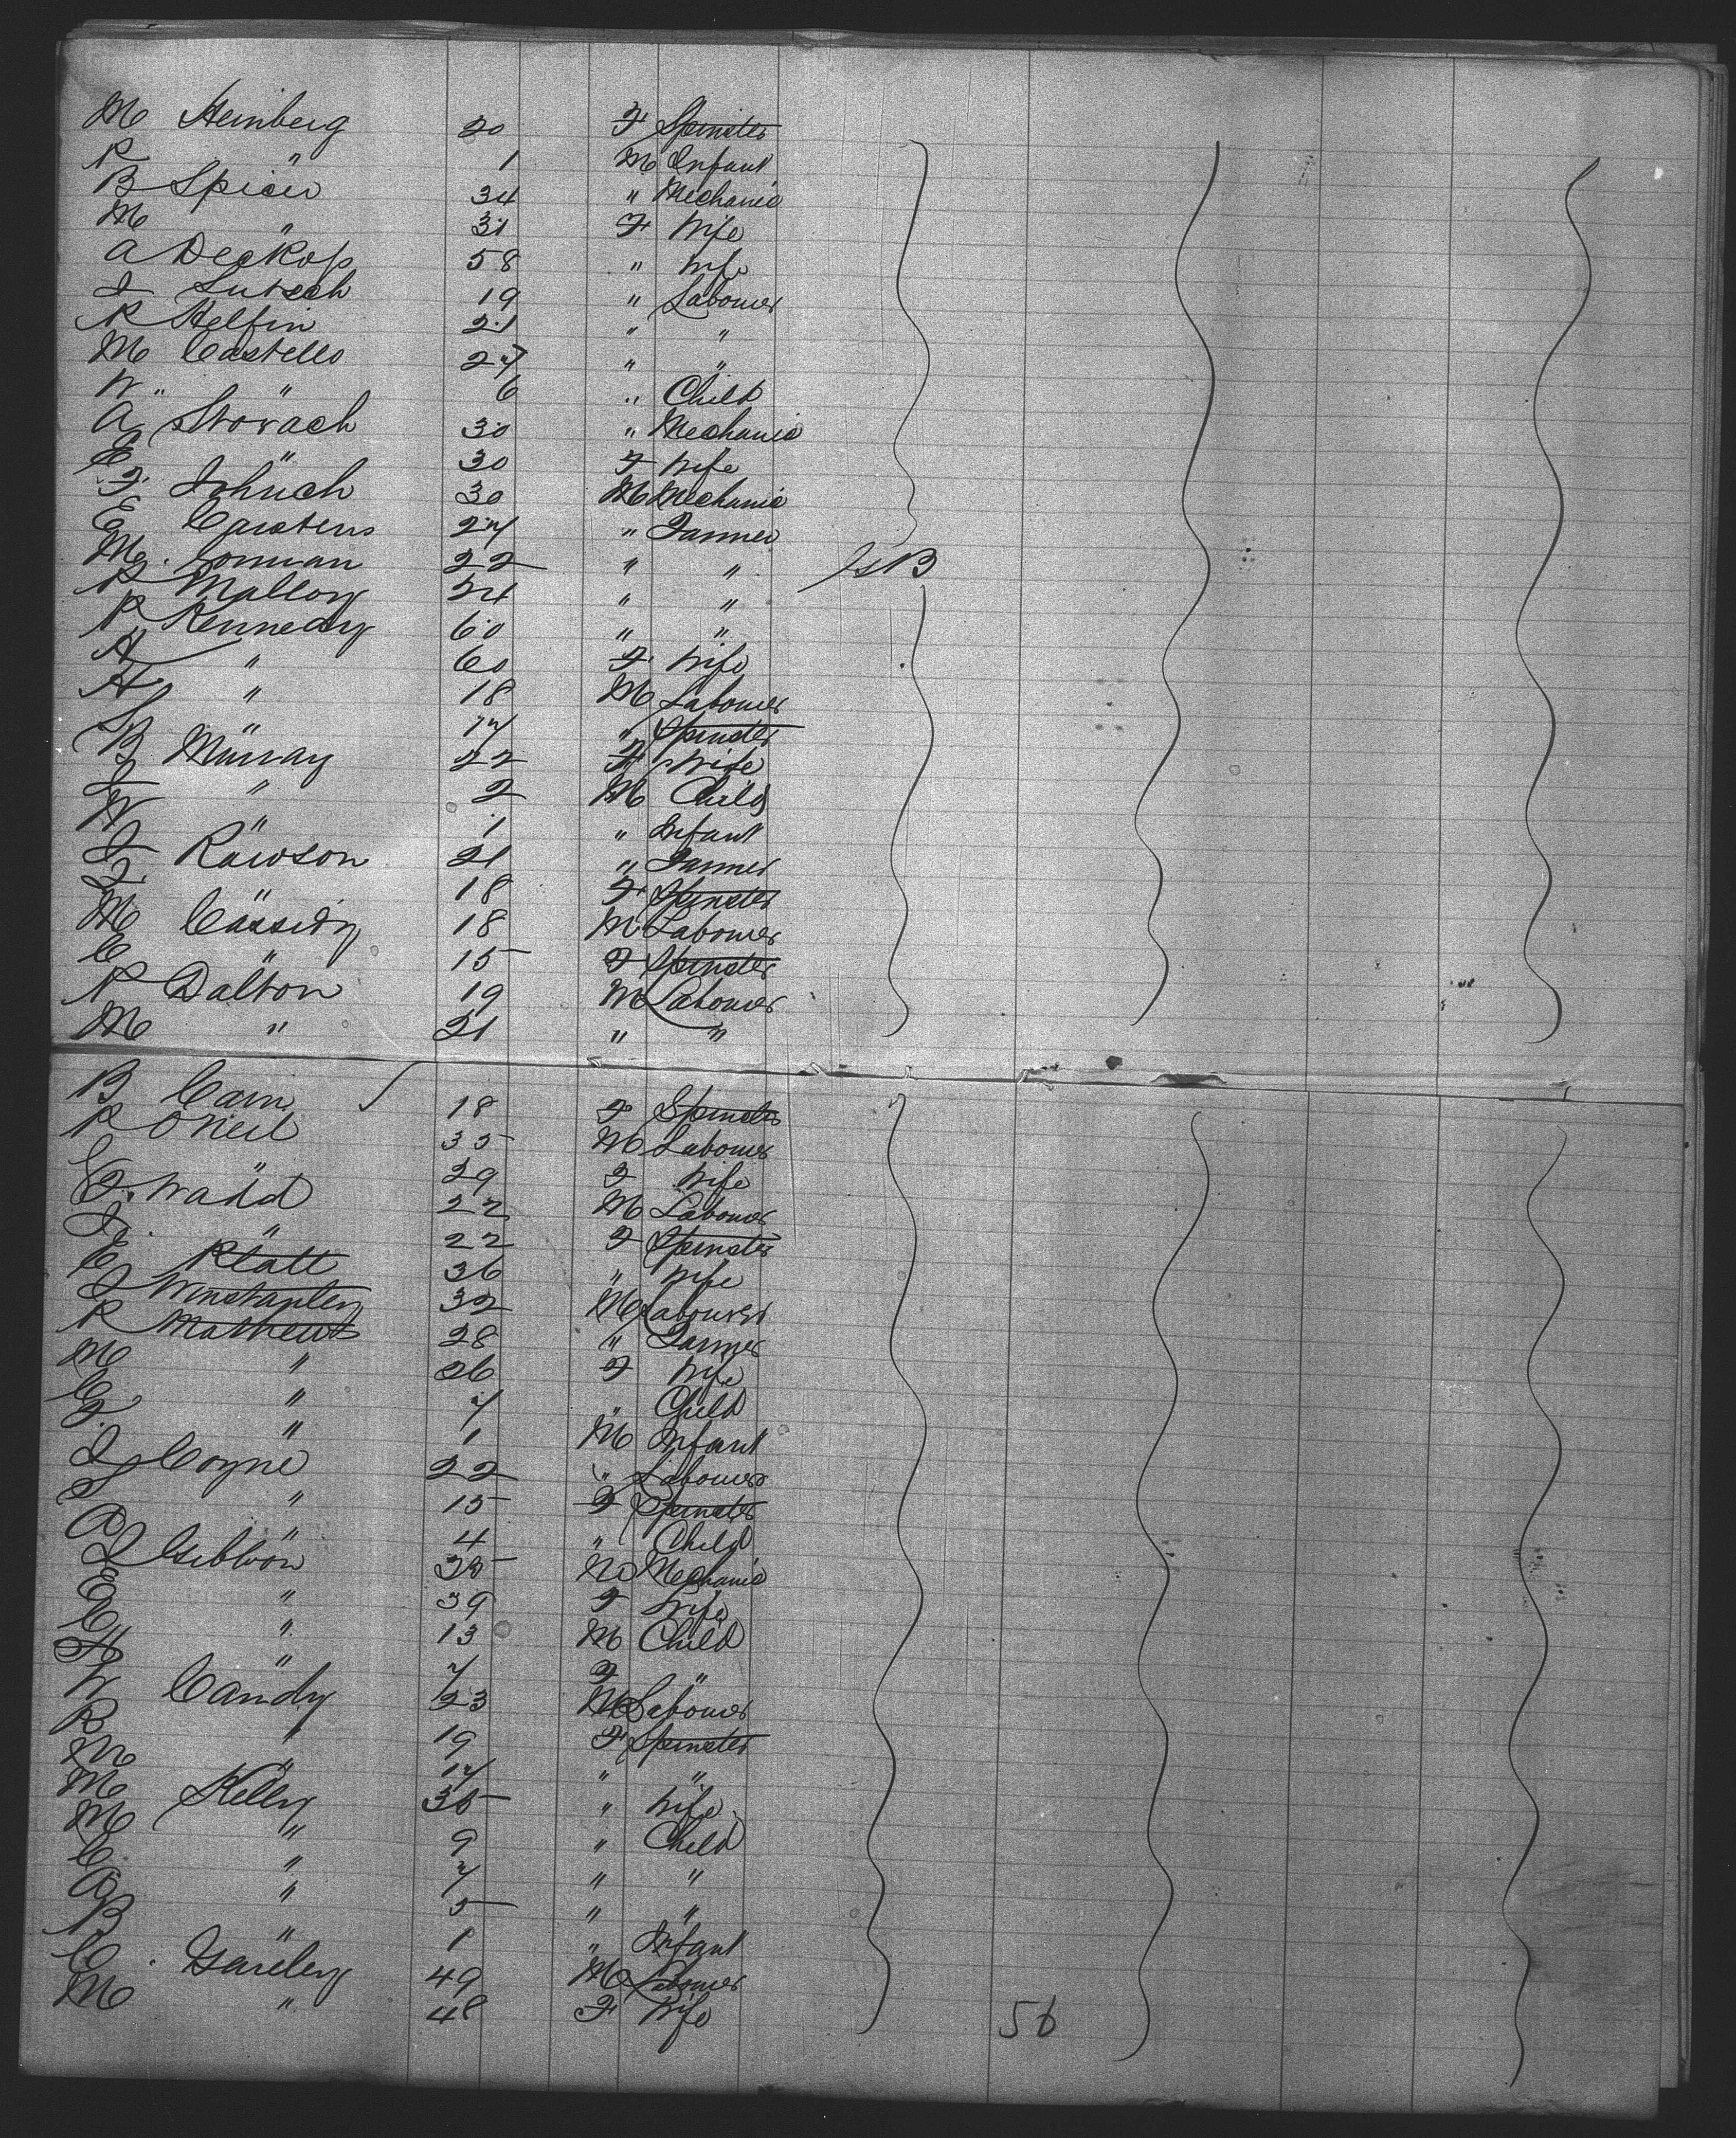 M Steinberg 20 F Spinster
P " 1 M Infant
B Spicer 34 " Mechanic
M " 31 F Wife
A Deckop 58 " Wife
I Lutsch 19 " Labourer
P Helfin 21 " "
M Costello 27 " "
W " " 6 " Child
A Storach 30 " Mechanic
E " 30 F Wife
F 30 M Mechanic
E Carstens 27 " Farmer
M. 22 " " JsB
P Mallory 24 " "
P Kennedy 60 " "
A " 60 F Wife
A " 18 M Labourer
S " 17 " Spinster
B Murray 22 F Wife
J " 2 M Child
W " 1 " Infant
J Rawson 21 " Farmer
J " 18 F Spinster
M Cassidy 18 M Labourer
C " 15 F Spinster
P Dalton 19 M Labourer
M " 21 " "
B Cain 18 F Spinster
P ONeil 35 M Labourer
E " 29 F Wife
J. Wadd 22 M Labourer
J. " 22 F Spinster
E Platt 36 " Wife
J Winstanley 32 M Labourer
P Mathews 28 " Farmer
M " 26 F Wife
C " 7 " Child
F. " 1 M Infant
J Coyne 22 " Labourer
S " 15 F Spinster
A " 4 " Child
J Gibbon 35 M Mechanic
E " 39 F Wife
C " 13 M Child
H " 7 F "
W Candy 23 M Labourer
R " 19 F Spinster
M " 17 " "
M Kelly 35 " Wife
M " 9 " Child
C. " 7 " "
A " 5 " "
B " 1 " Infant
C. 49 M Labourer
M " 48 F Wife
56